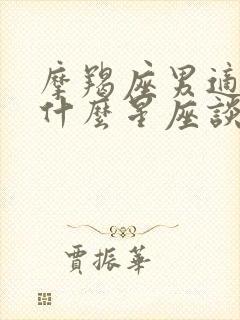 摩羯座男適
什麼星座談
賈振華